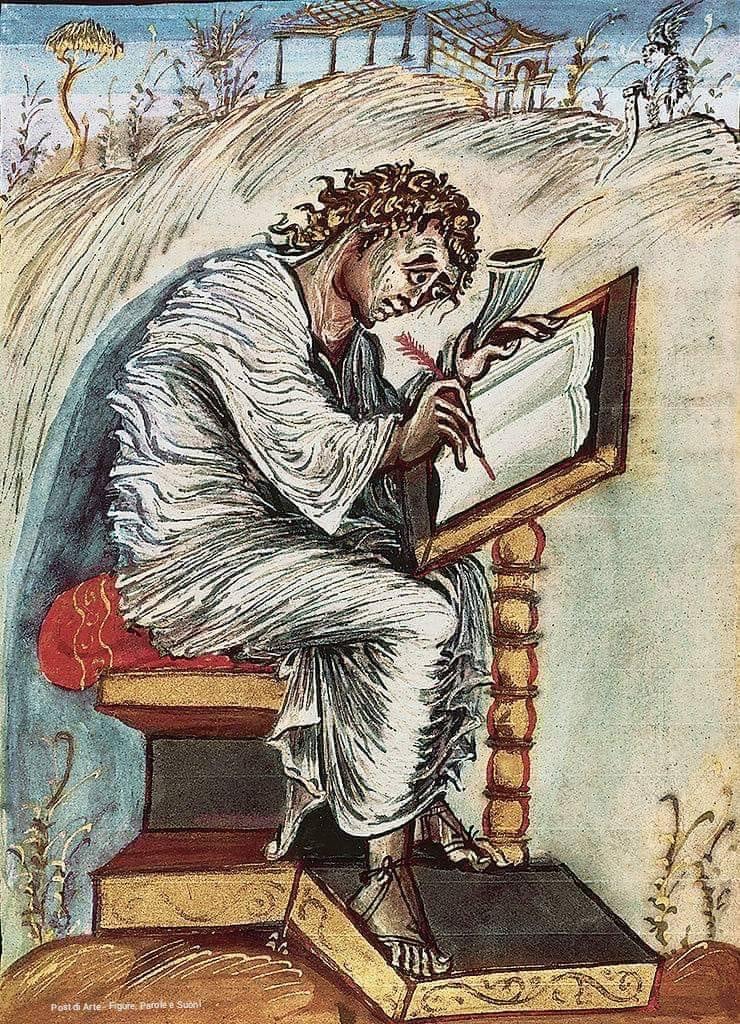 Post di Arte - Figure, Parole e Suoni